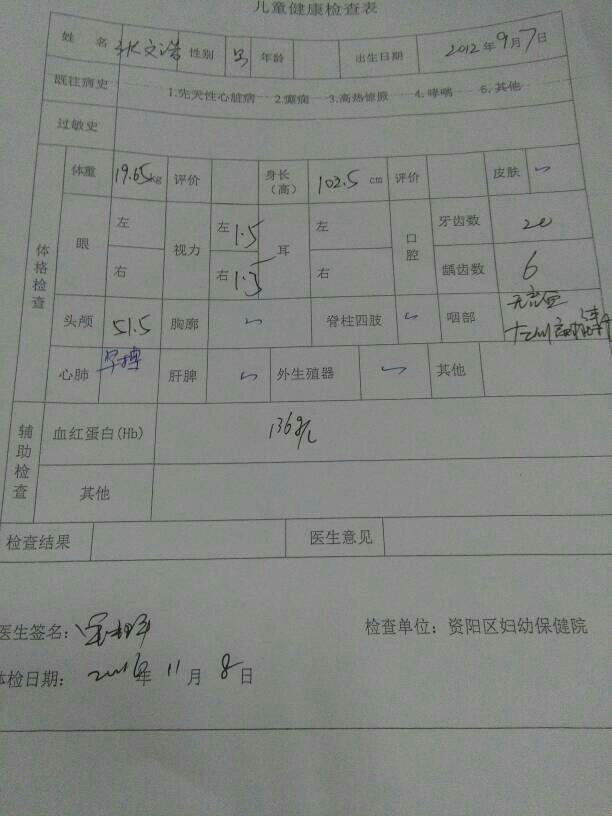 儿童健康检查表
姓 名 文浩 性别 男 年龄 出生日期 2012年9月7日
既往病史 1.先天性心脏病 2.癫痫 3.高热惊厥 4.哮喘 5.其他
过敏史
体格检查
体重 19.65kg 评价 身长(高) 102.5 cm 评价 皮肤 ✓
眼 左 视力 左 1.5 耳 左 口腔 牙齿数 20
右 右 1.5 右 龋齿数 6
头颅 51.5 胸廓 ✓ 脊柱四肢 ✓ 咽部
心肺 早搏 肝脾 ✓ 外生殖器 ✓ 其他
辅助检查
血红蛋白(Hb) 136g/L
其他
检查结果 医生意见
医生签名: 检查单位: 资阳区妇幼保健院
体检日期: 2016年 11月 8日